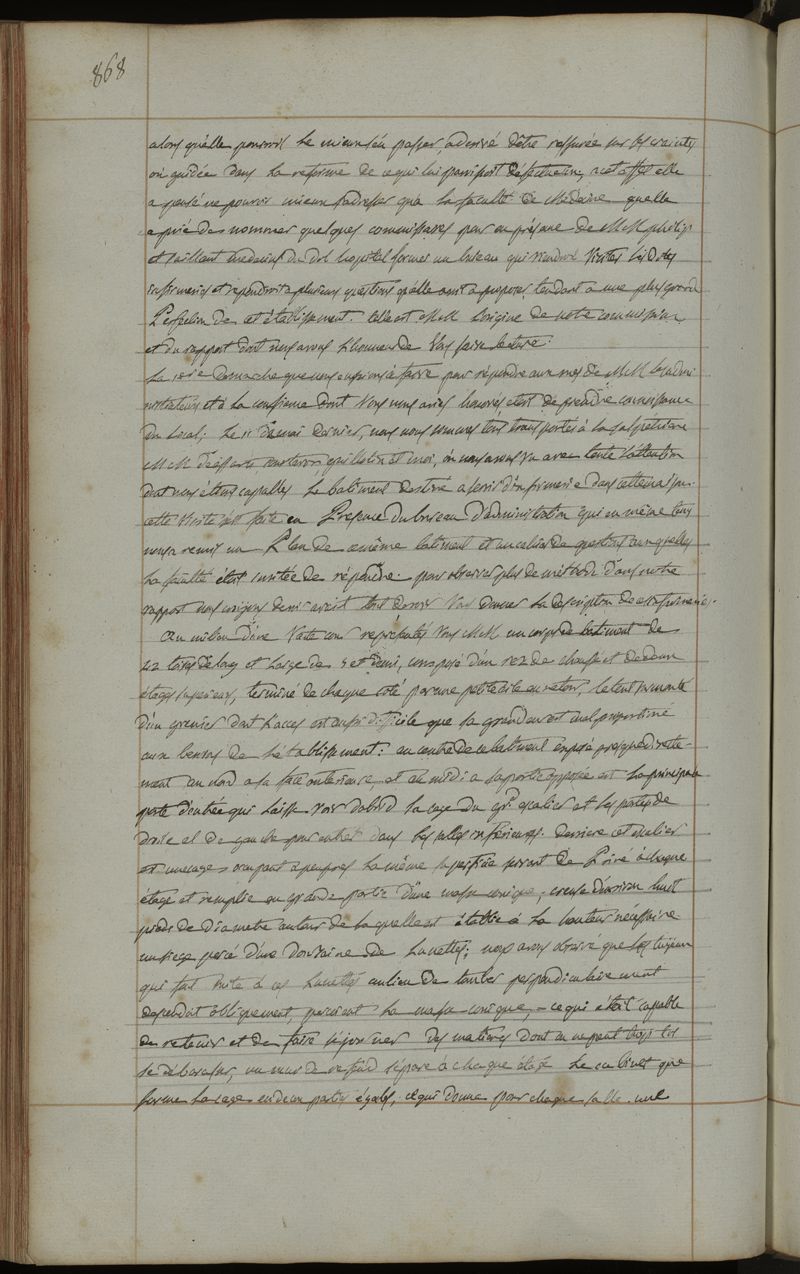 868
alors quelle pourroit le mieux s'en passer, a desiré d'être rassurée sur ses craintes
ou guidée dans la reforme de ce qui lui paroissoit défectueux, a cet effet elle
a pensé ne pouvoir mieux s'adresser qua la faculté de Médecine quelle
a priée de nommer quelques commissaires pour en présence de MM philip
et saillant medecins du dit hopital former un bureau qui viendroit visiter lesdites
infirmeries et repondroit a plusieurs questions qu'elle avoit a proposer tendant a une plus grande
Perfection de cet établissement. telle est MM l'origine de notre commission
et du rapport dont nous avons l'honneur de vous faire lecture.
La 1ere Demarche que nous eussions à faire pour répondre aux vues de MM les admi
nistrateurs et à la confiance dont vous nous aviez honorés, etoit de prendre connoissance
du Local; Le 11 de mai dernier, nous nous sommes tous transportés à la salpetriere
MM guillotin et moi, où nous avons vu avec toute l'attention
dont nous étions capables le batiment destiné a servir d'infirmerie dans cette maison.
cette visite s'est faite en Presence du bureau d'administration qui en même tems
nous a remis un Plan de ce même batiment et un cahier de questions auxquelles
la faculté étoit invitée de répondre pour observer plus de méthode dans notre
rapport nous croyons devoir avant tout vous donner la description de ces infirmeries.
Au milieu d'une vaste cour representés vous MM un corps de batiment de
42 toises de long et large de 5 et demi, composé d'un rez de chaussé et de deux
étages superieurs, terminé de chaque coté par une petite aile en retour, le tout surmonté
d'un grenier dont l'acces est aussi difficile que sa grandeur est mal proportionné
aux besoins de l'établissement: au centre de ce batiment exposé presque directe-
ment au nord a sa face anterieure, et au midi a sa partie opposée est la principale
porte d'entrée qui laisse voir d'abord la cage du gd escalier et les portes de
droite et de gauche pour entrer dans les salles inférieures. Derriere cet escalier
est une cage occupant a peu pres la même superficie servant de Privé à chaque
étage et remplie en grande partie d'une masse conique, creuse d'environ huit
pieds de diametre autour de laquelle est établie à la hauteur nécessaire
un siege percé d'une douzaine de Lunettes; nous avons observé que les tuyaux
qui font suite à ces Lunettes au lieu de tomber perpendiculairement
descendoit obliquement, percoient la masse conique, - ce qui étoit capable
de retenir et de faire séjourner des matieres dont on ne peut trop tot
se debarasser, un mur de refend sépare à chaque étage le cabinet que
forme la cage en deux parties égales, ce qui donne pour chaque salle une